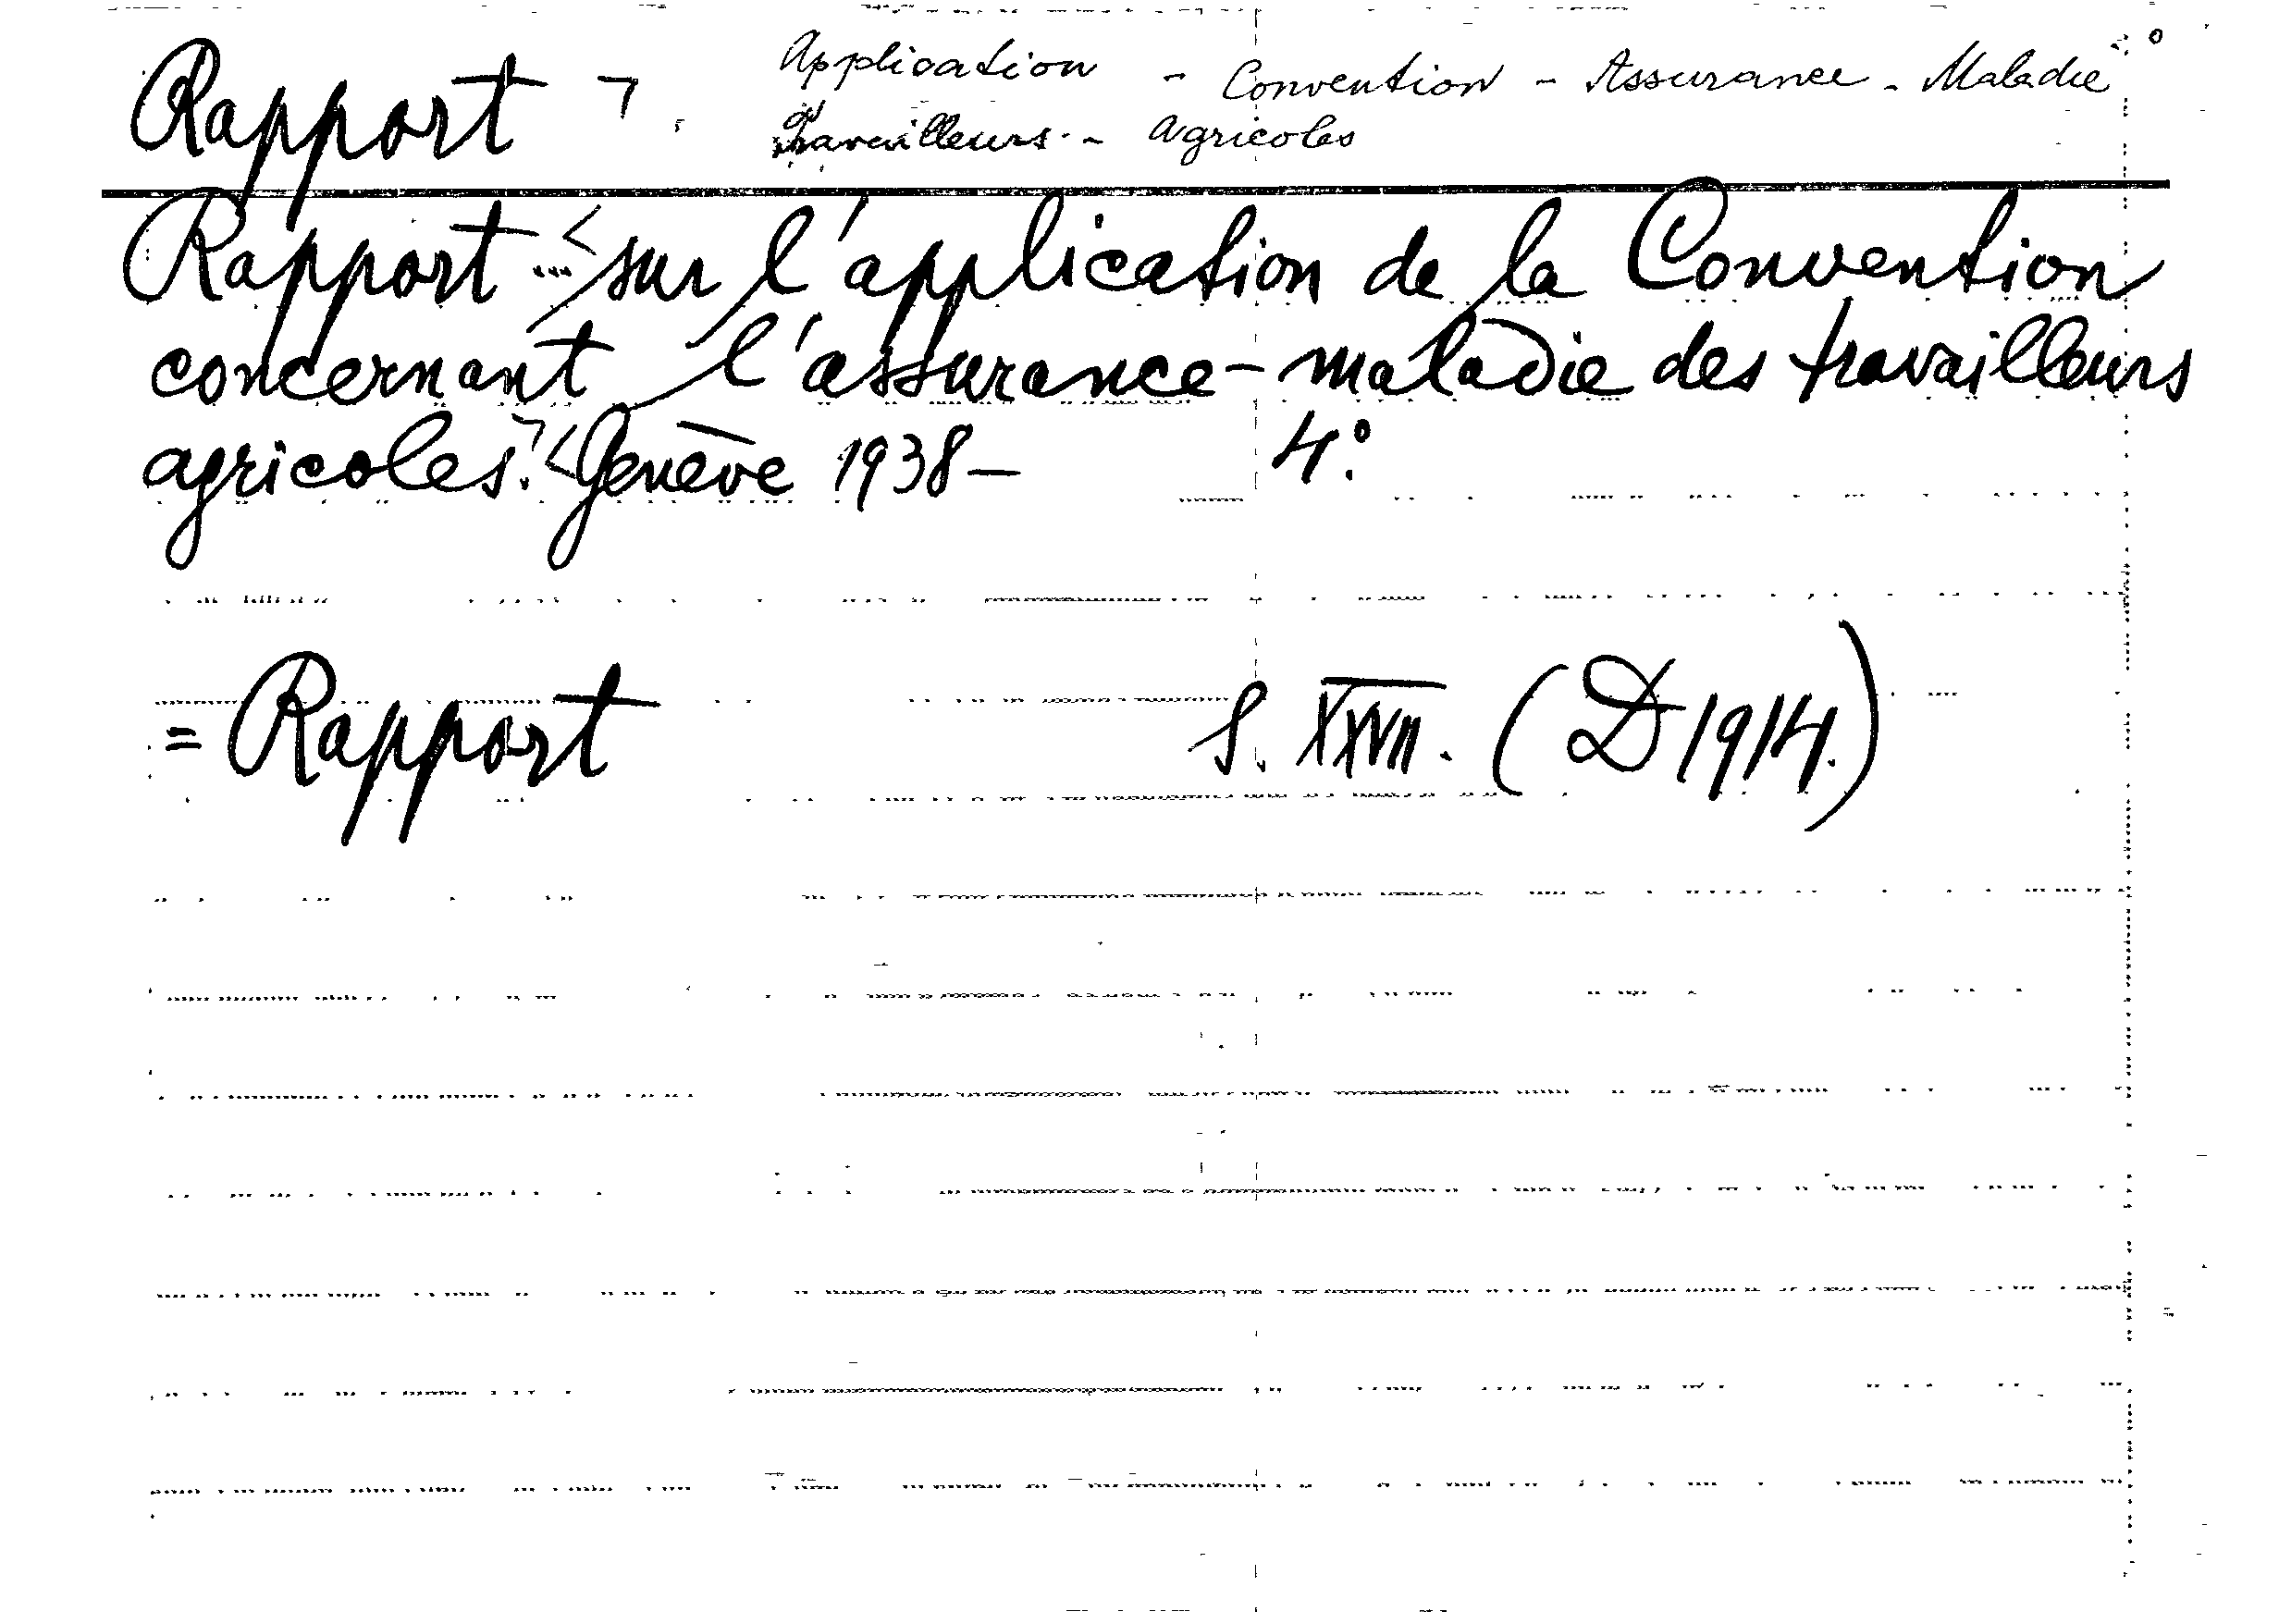 Rapport ¬. Application - Convention - Assurance - Maladie
Travailleurs. - Agricoles
Rapport ... < sur l'application de la Convention
concernant l'assurance-maladie des travailleurs
agricoles. ¬ < Genève 1938 — 4º.
= Rapport S. XXVII. (D 1914.)